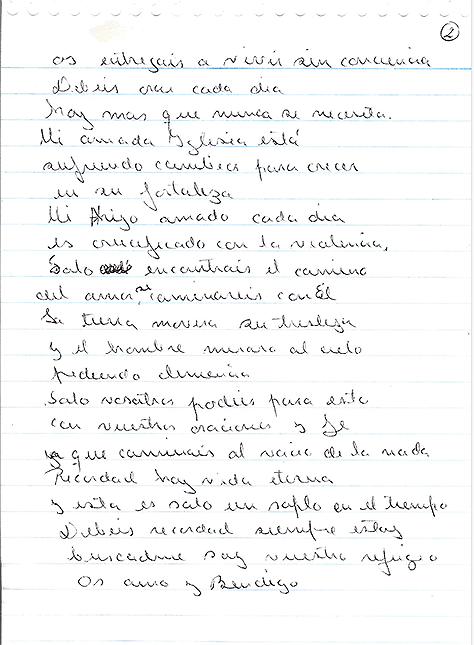 2
os entregais a vivir sin conciencia
Debeis orar cada dia
hoy mas que nunca se necesita.
Mi amada Iglesia está
sufriendo cambios para crecer
en su fortaleza
Mi Hijo amado cada dia
es crucificado con la violencia,
Solo encontrais el camino
del amor, si caminareis con Él
La tierra movera su tristeza
y el hombre mirara al cielo
pidiendo clemencia
Solo vosotros podeis parar esto
con vuestras oraciones y fe
ya que caminais al vacio de la nada
Recordad hay vida eterna
y esta es solo un soplo en el tiempo
Debeis recordad siempre estoy
buscadme soy vuestro refugio
Os amo y Bendigo